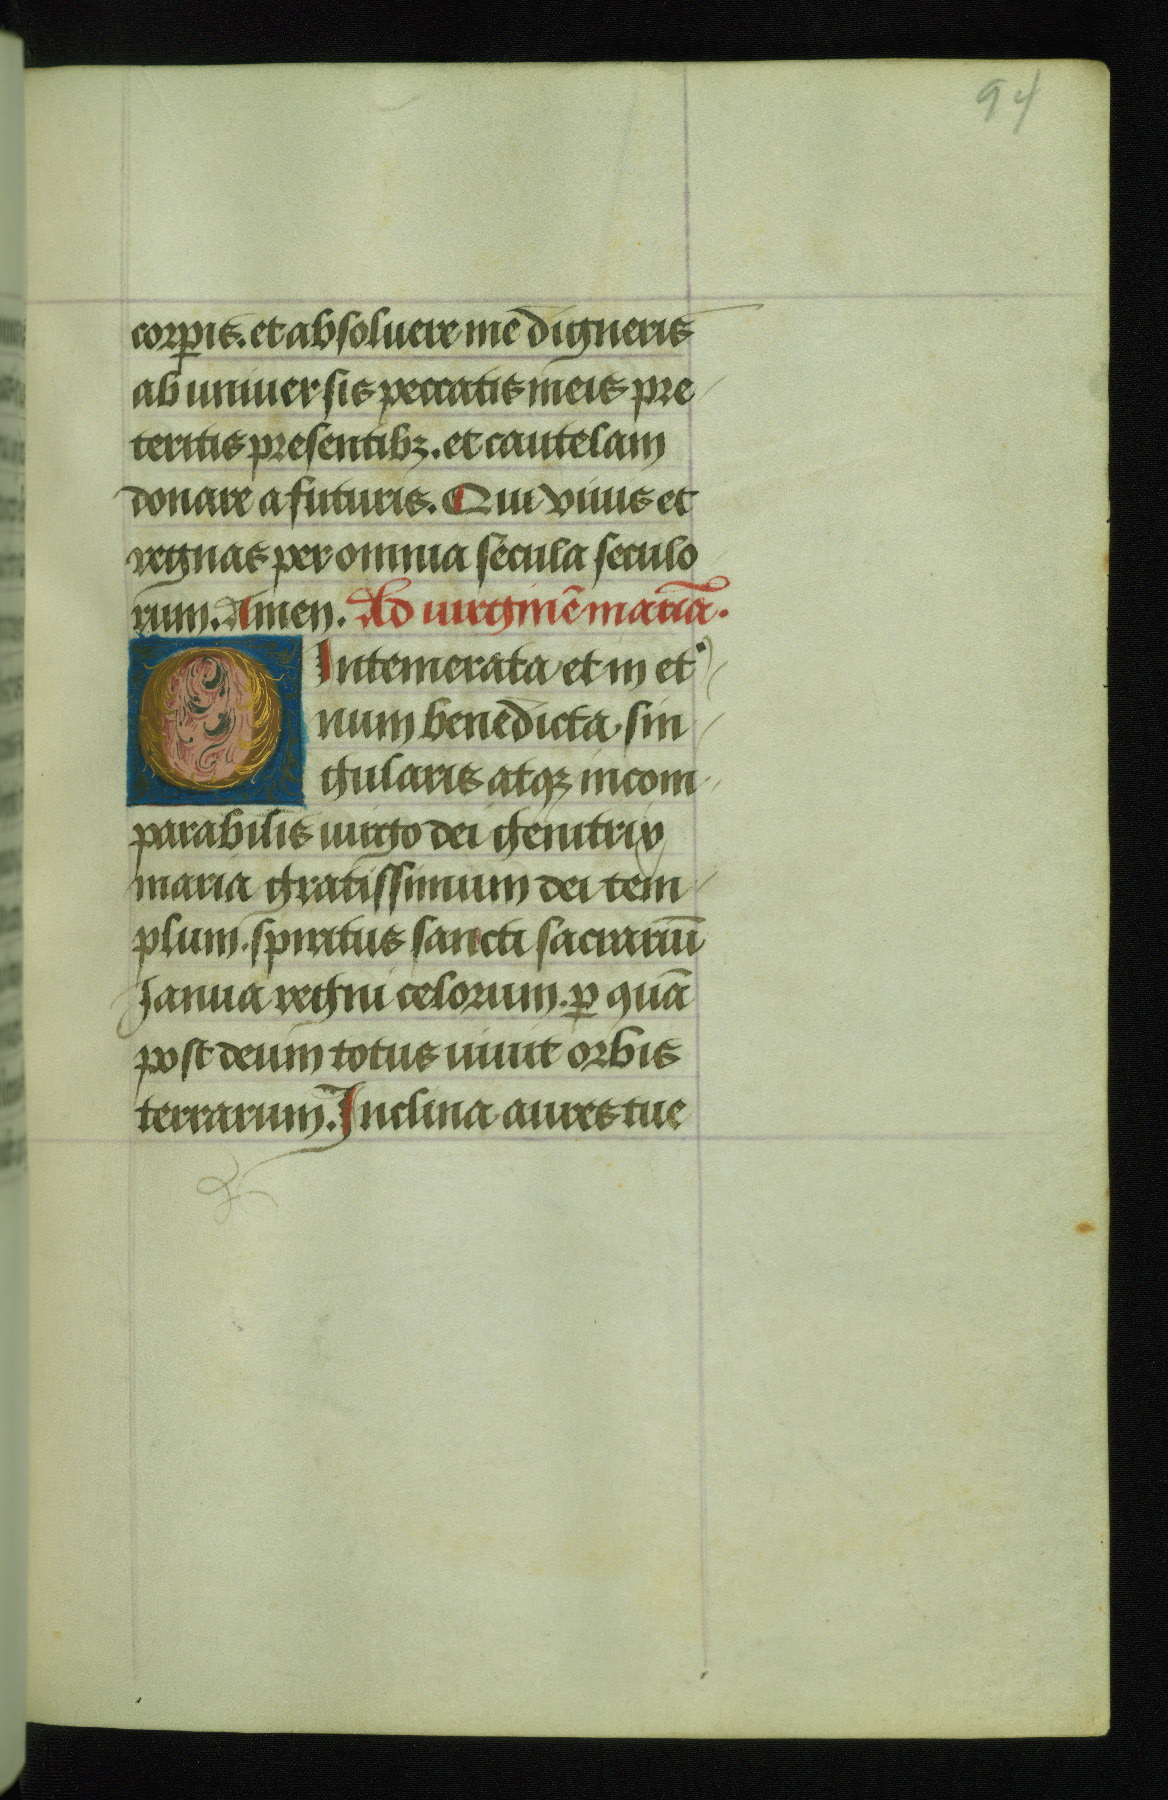 94
corꝑis. et absoluere me digneris
ab uniuersis peccatis meis pre
teritis presentibꝫ. et cautelam
donare a futuris. Qui viuis et
regnas per omnia secula seculo
rum. Amen. Ad uirginē mariā.
O Intemerata et in et̾
num benedicta, sin
gularis atqꝫ incom
parabilis uirgo dei genitrix
maria gratissimum dei tem
plum. spiritus sancti sacrariū
Janua regni celorum. ꝑ quā
post deum totus uiuit orbis
terrarum. Inclina aures tue